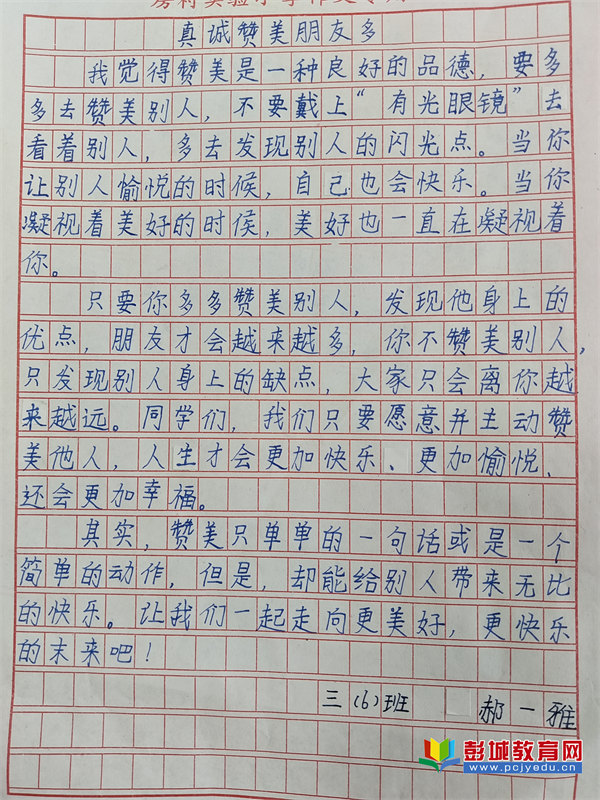 真诚赞美朋友多
我觉得赞美是一种良好的品德，要多
多去赞美别人，不要戴上“有光眼镜”去
看着别人，多去发现别人的闪光点。当你
让别人愉悦的时候，自己也会快乐。当你
凝视着美好的时候，美好也一直在凝视着
你。
只要你多多赞美别人，发现他身上的
优点，朋友才会越来越多，你不赞美别人，
只发现别人身上的缺点，大家只会离你越
来越远。同学们，我们只要愿意并主动赞
美他人，人生才会更加快乐、更加愉悦、
还会更加幸福。
其实，赞美只单单的一句话或是一个
简单的动作，但是，却能给别人带来无比
的快乐。让我们一起走向更美好，更快乐
的末来吧！
三（6）班 郝一雅
彭城教育网
www.pcjyedu.cn